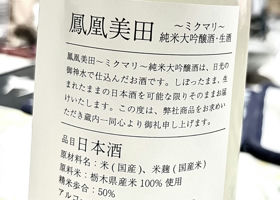 鳳凰美田
～ミクマリ～
純米大吟醸酒・生酒
鳳凰美田～ミクマリ～純米大吟醸酒は、日光の
御神水で仕込んだお酒です。しぼったまま、生
まれたままの日本酒を可能な限りそのままお届
けいたします。この度は、弊社商品をお求めい
ただき蔵内一同心より御礼申し上げます。
品目 日本酒
原材料名：米（国産）、米麹（国産米）
原料米：栃木県産米100%使用
精米歩合：50%
アルコ